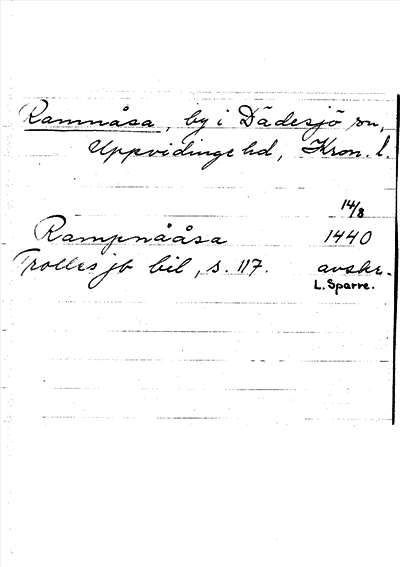 Ramnåsa, by i Dädesjö sn,
Uppvidinge hd, Kron. l.
14/8
Rampnååsa 1440
Trolles jb bil, s. 117. avskr.
L. Sparre.